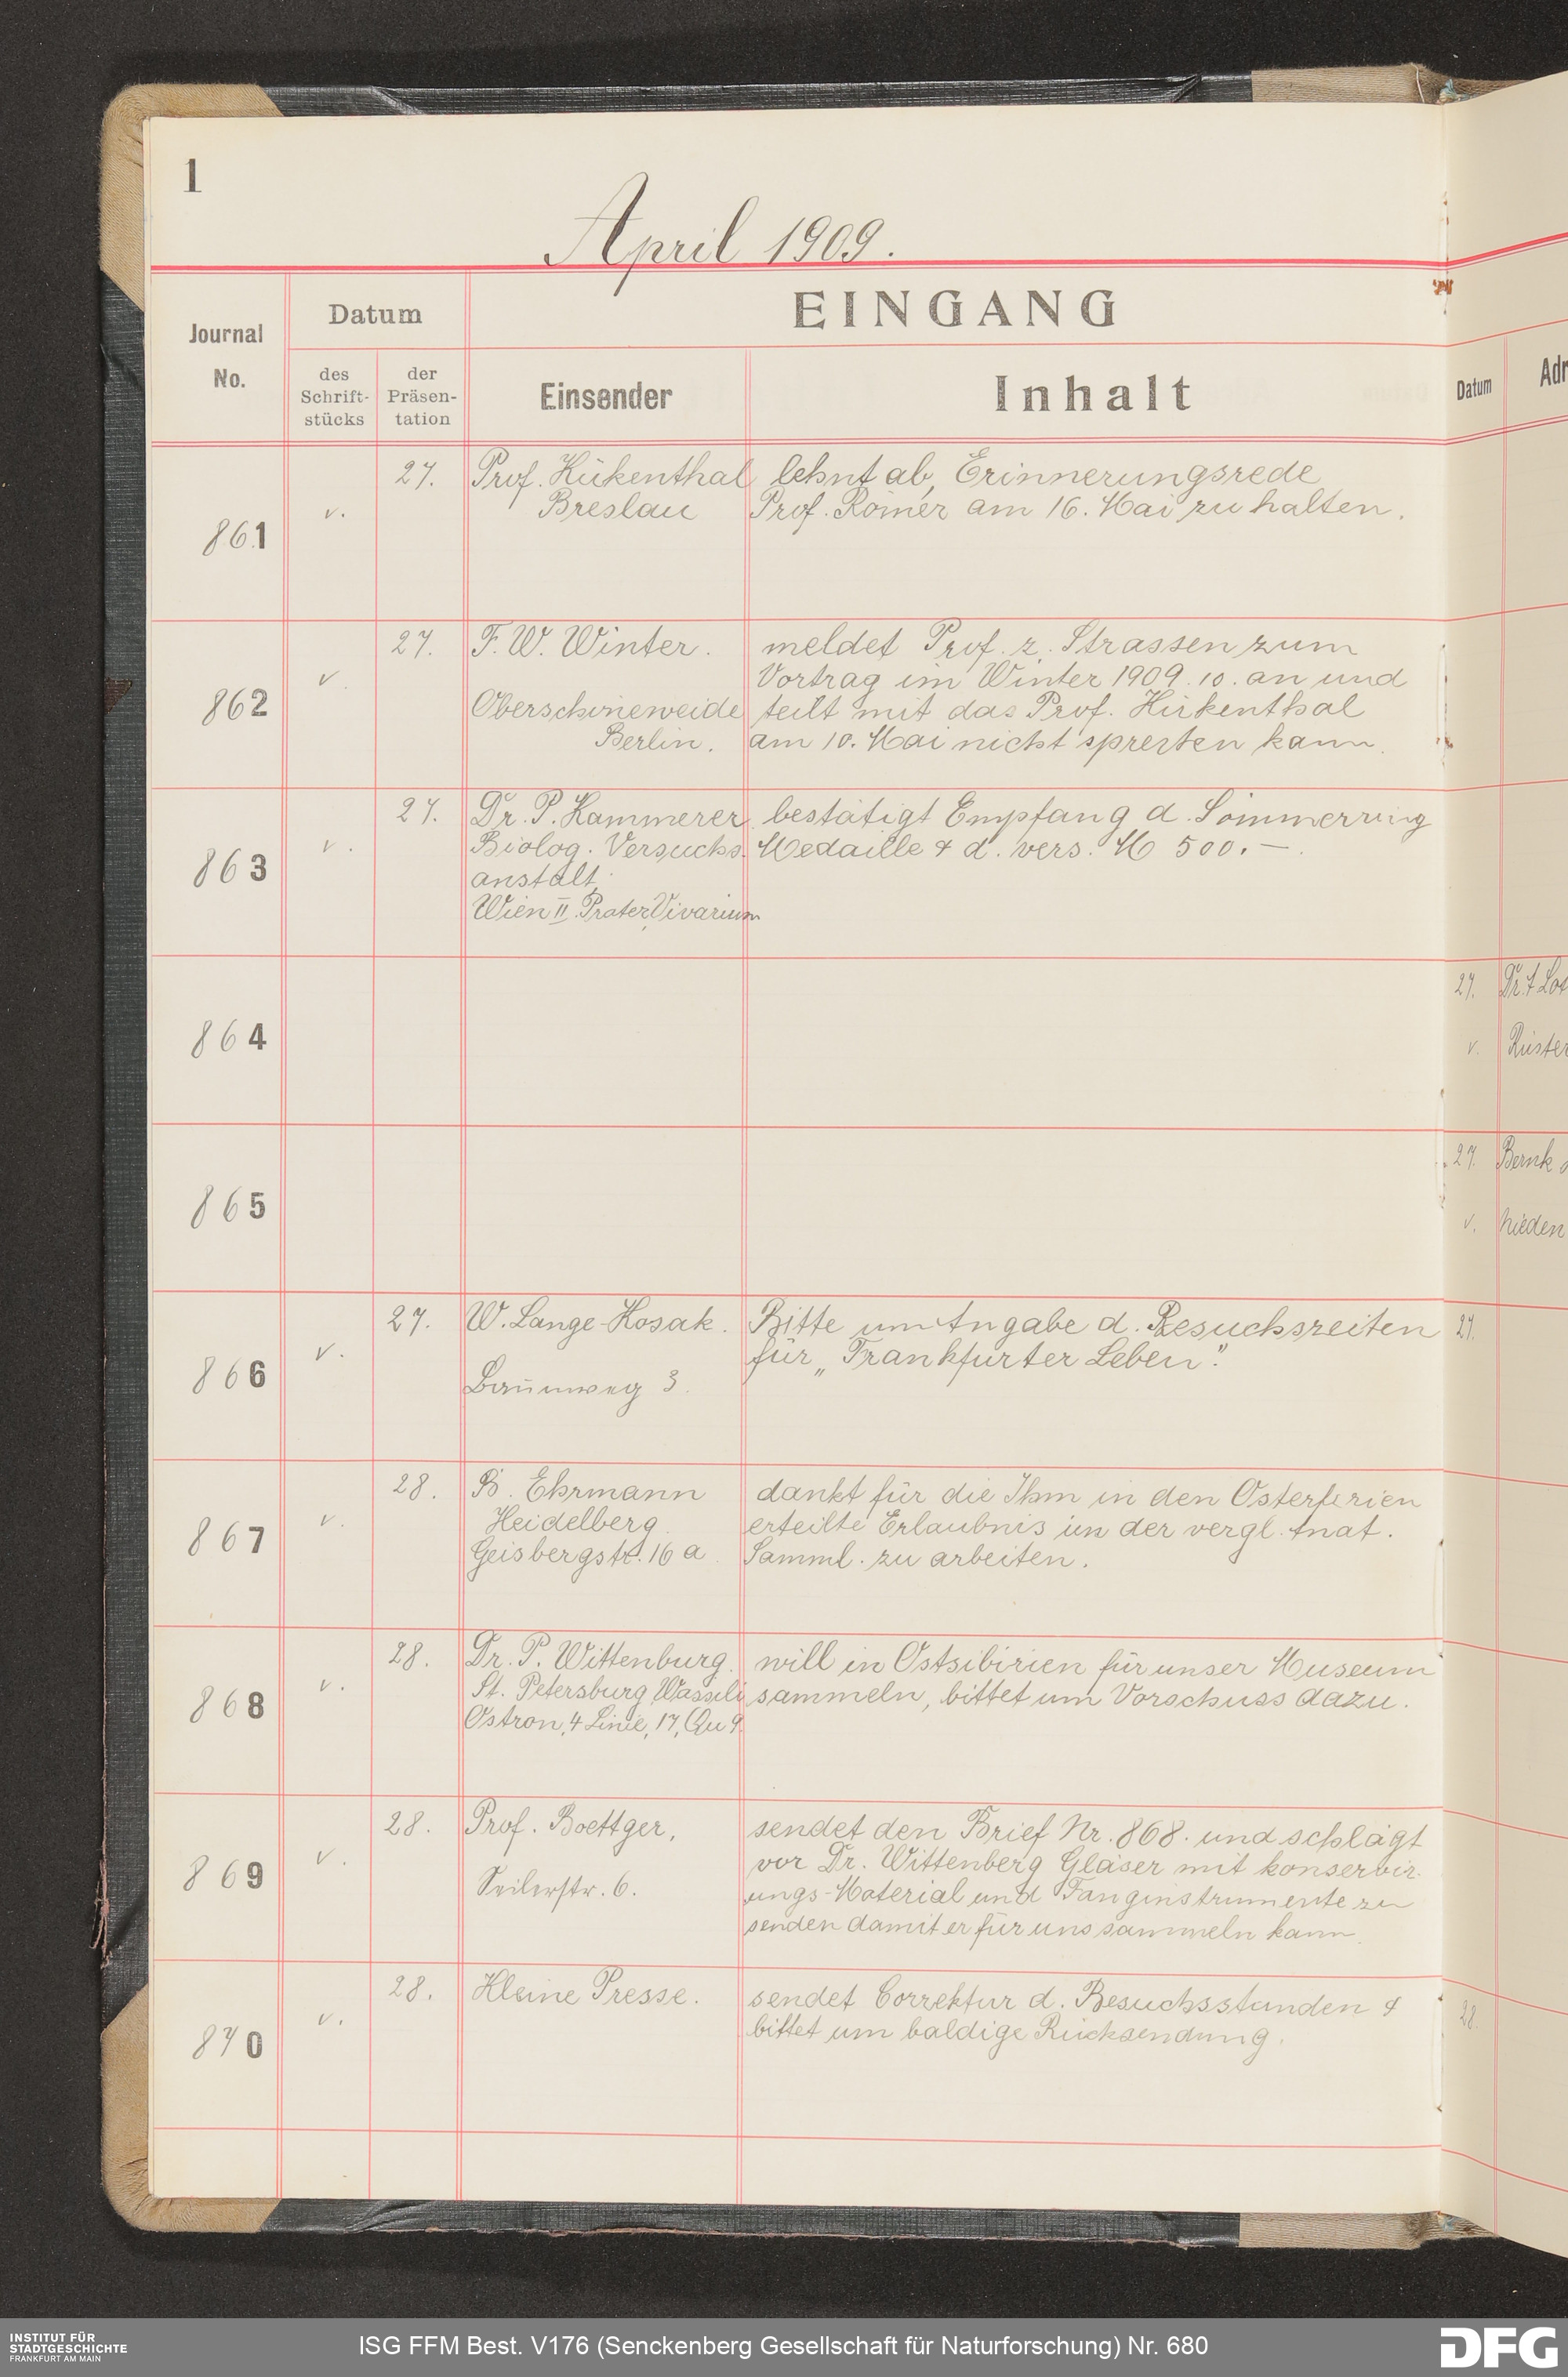 1
April 1909.
Journal No.
Datum
des Schrift-stücks
der Präsen-tation
EINGANG
Einsender
Inhalt
Datum
Adr
861
v.
27.
Prof. Kükenthal
Breslau
lehnt ab, Erinnerungsrede
Prof. Römer am 16. Mai zu halten.
862
v.
27.
F. W. Winter.
Oberschöneweide
Berlin.
meldet Prof. z. Strassen zum
Vortrag im Winter 1909.10. an und
teilt mit das Prof. Kükenthal
am 10. Mai nicht sprechen kann.
863
v.
27.
Dr. P. Kammerer
Biolog. Versuchs.
anstalt,
Wien II. Prater, Vivarium
bestätigt Empfang d. Sömmerring
Medaille & d. vers. M 500.—.
864
27.
v.
Rüster
865
27.
v.
Nieden
866
v.
27.
W. Lange-Kosak.
Baumweg 3.
Bitte um Angabe d. Besuchszeiten
für „Frankfurter Leben".
27.
867
v.
28.
B. Ehrmann
Heidelberg.
Geisbergstr. 16 a.
dankt für die Ihm in den Osterferien
erteilte Erlaubnis in der vergl. Anat.
Samml. zu arbeiten.
868
v.
28.
Dr. P. Wittenburg.
St. Petersburg, Wassili
Ostron, 4 Linie, 17, Qu 9.
will in Ostsibirien für unser Museum
sammeln, bittet um Vorschuss dazu.
869
v.
28.
Prof. Boettger,
Seilerstr. 6.
sendet den Brief Nr. 868. und schlägt
vor Dr. Wittenberg Gläser mit konservir-
ungs-Material und Fanginstrumente zu
senden damit er für uns sammeln kann.
870
v.
28.
Kleine Presse.
sendet Correktur d. Besuchsstunden &
bittet um baldige Rücksendung.
28.
INSTITUT FÜR
STADTGESCHICHTE
FRANKFURT AM MAIN
ISG FFM Best. V176 (Senckenberg Gesellschaft für Naturforschung) Nr. 680
DFG